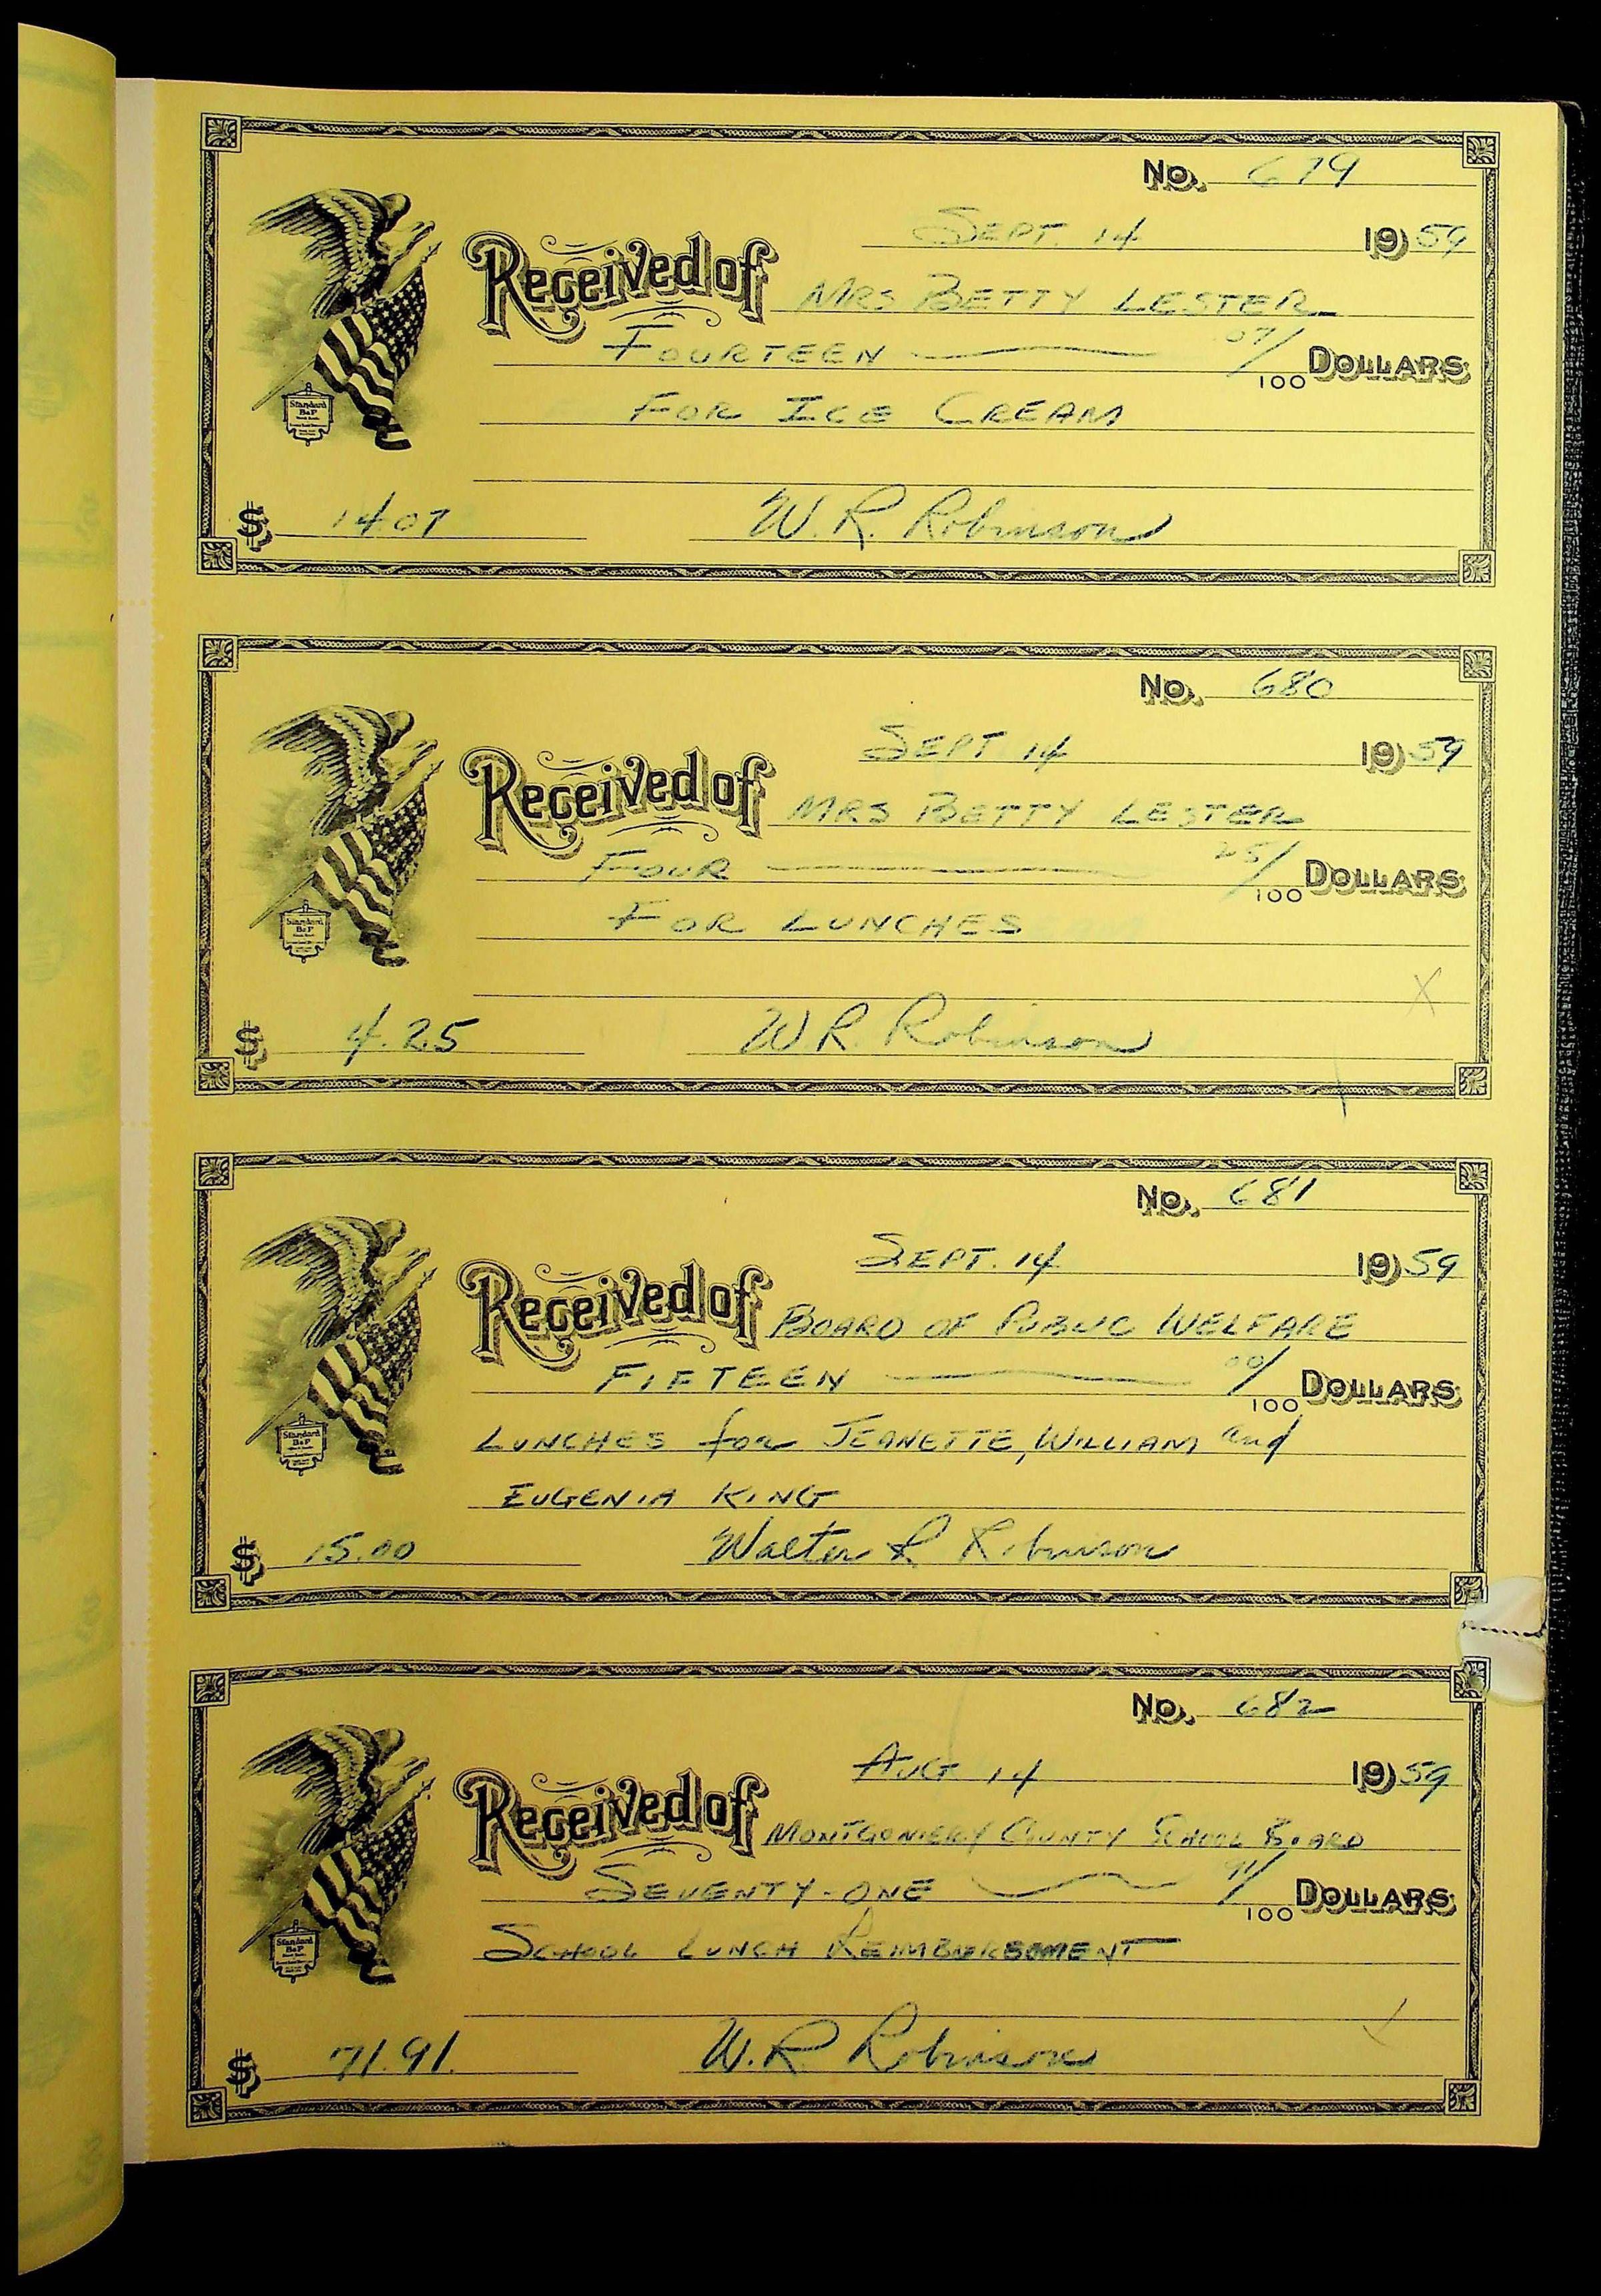 No. 679
SEPT. 14 1959
Received of MRS BETTY LESTER
FOURTEEN 07/100 DOLLARS
FOR ICE CREAM
$ 14.07 W. R. Robinson
Standard B&P
No. 680
SEPT 14 1959
Received of MRS BETTY LESTER
FOUR 25/100 DOLLARS
FOR LUNCHES
X
$ 4.25 W. R. Robinson
Standard B&P
No. 681
SEPT. 14 1959
Received of BOARD OF PUBLIC WELFARE
FIFTEEN 00/100 DOLLARS
LUNCHES for JEANETTE, WILLIAM and
EUGENIA KING
$ 15.00 Walter R Robinson
Standard B&P
No. 682
AUG 14 1959
Received of MONTGOMERY COUNTY SCHOOL BOARD
SEVENTY-ONE 91/100 DOLLARS
SCHOOL LUNCH REIMBURSEMENT
$ 71.91. W. R Robinson
Standard B&P